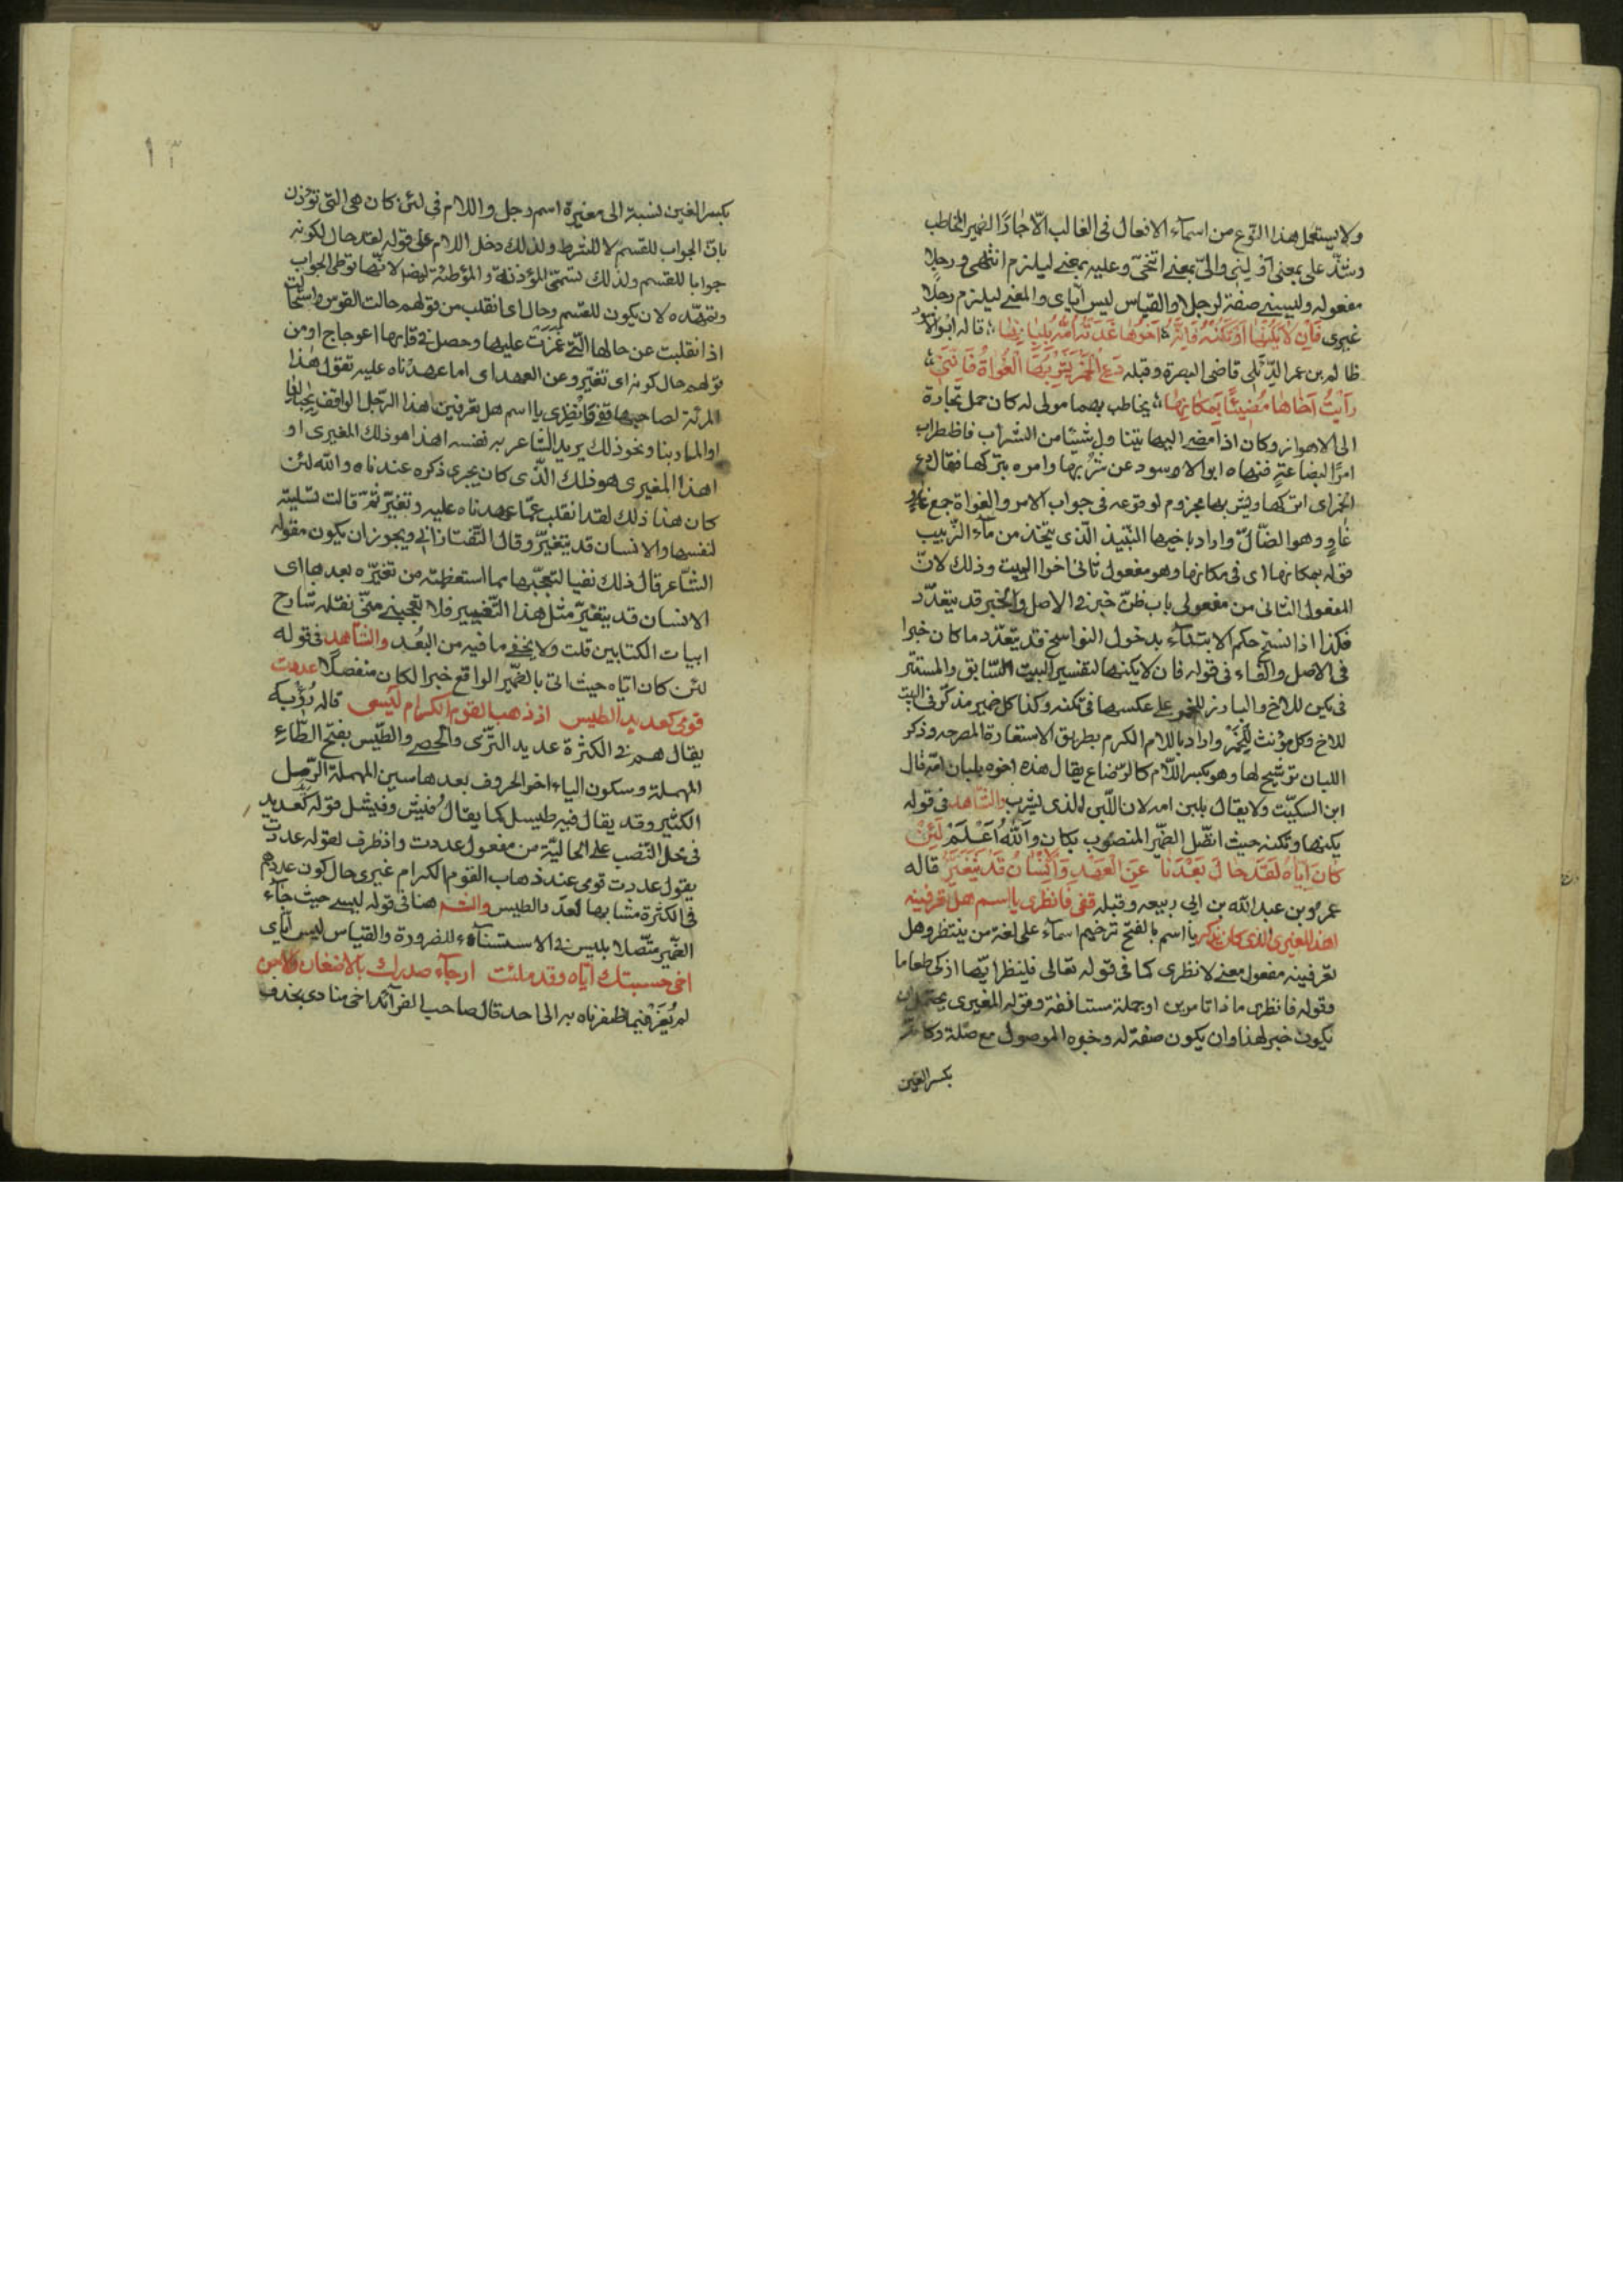 ولا يستعمل هذا النوع من اسمآء الافعال فى الغالب الّا جارّا الضمير المخاطب
وشذّ على بمعنى اولينى والىّ بمعنى اتنحّى وعليه بمعنى ليلزم انتهى ورجلا
مفعوله وليسنى صفة لرجلا والقياس ليس ايّاى والمعنى ليلزم رجلا
غيرى فَاِن لَا يَكُنْهَا اَوْ تَكُنْهُ فَاِنَّهُ اَخُوْهَا غَذَتْهُ اُمُّهُ بِلِبَانِهَا قاله ابو الاسود
ظالم بن عمر الدّئلى قاضى البصرة وقبله دَعِ الْخَمْرَ يَشْرَبْهَا الْغُوَاةُ فَاِنَّنِى
رَاَيْتُ اَخَاهَا مُغْنِيًا بِمَكَانِهَا يخاطب بهما مولى له كان حمل تجارة
الى الاهواز وكان اذا مضى اليها يتناول شيئا من الشراب فاظطراب
امر البضاعة فنهاه ابو الاوسود عن شربها وامره بتركها فقال دع
الخمر اى اتركها ويشربها مجزوم لوقوعه فى جواب الامر والغواة جمع
غاوٍ وهو الضّالّ واراد باخيها النّبيذ الّذى يتخذ من مآء الزّبيب
قوله بمكانها اى فى مكانها وهو مفعول ثانى اخوا البيت وذلك لانّ
المفعول الثانى من مفعولى باب ظنّ خبر فى الاصل والخبر قد يتعدّد
فكذا اذا نسخ حكم الابتدآء بدخول النواسخ قد يتعدّد ما كان خبرا
فى الاصل والفاء فى قوله فان لا يكنها لتفسير البيت السّابق والمستتر
فى يكن للاخ والبارز للخمر على عكسها فى تكنه وكذا كل ضمير مذكّر فى البيت
للاخ وكل مؤنث للخمر واراد باللام الكرم بطريق الاستعارة المصرحه وذكر
اللبان ترشيح لها وهو بكسر اللّام كالرّضاع يقال هذه اخوه بلبان امّه قال
ابن السكيّت ولا يقال بلبن امه لان اللّبن الذى يشرب والشّاهد فى قوله
يكنها وتكنه حيث اتّصل الضّمير المنصوب بكان واَللّهُ اَعْلَمْ لَئِنْ
كَانَ اِيَّاهُ لَقَدْ حَالَ بَعْدَنَا عَنِ الْعَهْدِ وَالْاِنْسَانُ قَدْ يَتَغَيَّرُ قاله
عمرو بن عبد الله بن ابى ربيعه وقبله قفى فانظرى يا اسم هل تعرفينه
اهذا المغيرى الذى كان يذكر يا اسم بالفتح ترخيم اسمآء على لغة من ينتظر وهل
تعرفينه مفعول معنى لانظرى كما فى قوله تعالى فلينظر ايّها ازكى طعاما
وقوله فانظرى ماذا تامرين او جملة مستانفة وقوله المغيرى يحتمل ان
يكون خبر لهذا وان يكون صفة له وخبره الموصول مع صلة
بكسر الغين
١٣
بكسر الغين نسبة الى مغيرة اسم رجل واللام فى لئن كان هى التى تؤذن
بانّ الجواب للقسم لا للشرط ولذلك دخل اللام على قوله لقد حال لكونه
جوابا للقسم ولذلك تسمّى المؤذنة والمؤطئة ايضا لانّها توطى الجواب
وتمهّده لان يكون للقسم وحال اى انقلب من قولهم حالت القوس واستحالت
اذا انقلبت عن حالها التى غمزت عليها وحصل فى قابها اعوجاج او من
قولهم حال كونه اى تغيّر وعن العهد اى اما عهدناه عليه تقول هذا
المرئة لصاحبها قفى وانظرى يا اسم هل تعرفين هذا الرّجل الواقف
او المار بنا ونحو ذلك يريد الشّاعر به نفسه اهذا هو ذلك المغيرى او
اهذا المغيرى هو ذلك الّذى كان يجرى ذكره عندناه والله لئن
كان هذا ذلك لقد انقلب عمّا عهدناه عليه وتغيّر ثمّ قالت تسلية
لنفسها والانسان قد يتغيّر وقال التّفتازانى ويجوز ان يكون مقوله
الشّاعر قال ذلك نفيا لتعجّبها مما استعظمته من تغيّره بعدها اى
الانسان قد يتغيّر مثل هذا التّغيير فلا تتعجبى منّى نقله شارح
ابيات الكتابين قلت ولا يخفى ما فيه من البُعد والشّاهد فى قوله
لئن كان ايّاه حيث اتى بالضّمير الواقع خبرا لكان منفصلا عددت
قومى كعديد الطيس اذ ذهب القوم الكرام ليسى قاله رُؤبه
يقال هم فى الكثرة عديد الثرّى والحصى والطّيس بفتح الطّاء
المهملة وسكون الياء اخر الحروف بعدها سين المهملة الرّمل
الكثير وقد يقال فيه طيسل كما يقال فيش وفيشل قوله كعديد
فى محل النّصب على الحاليّة من مفعول عددت واذ ظرف لقوله عددت
يقول عددت قومى عند ذهاب القوم الكرام غيرى حال كون عددهم
فى الكثرة مشابها لعدد الطيس والشّم هنا فى قوله ليسى حيث جآء
الضّمير متّصلا بليس فى الاستثنآء للضرورة والقياس ليس ايّاى
اخى حسبتك ايّاه وقد ملئت ارجآء صدرك بالاضغان والاحن
لم يُعْزَ فيما ظفرناه به الى احد قال صاحب الفرآئد اخى منادى بحذف